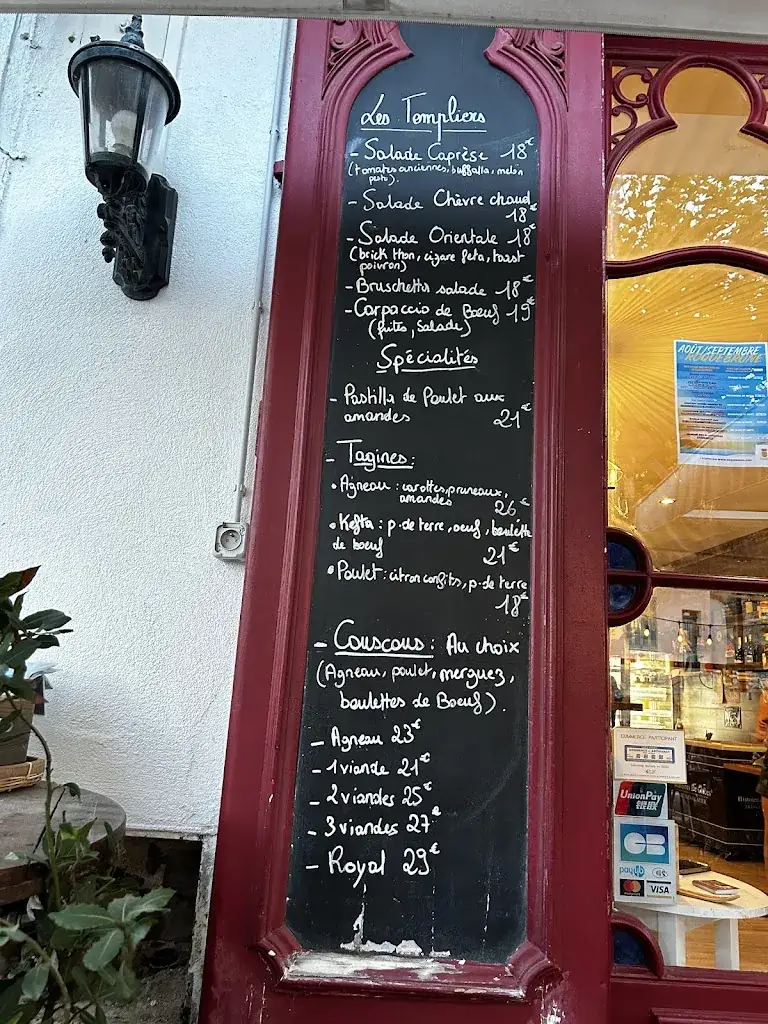 Les Templiers
- Salade Caprèse 18€
(tomates anciennes, buffalla, melon
pesto).
- Salade Chèvre chaud
18€
- Salade Orientale 18€
(brick thon, cigare feta, toast
poivron)
- Bruschetta salade 18€
- Carpaccio de Boeuf 19€
(frites, Salade)
Spécialités
- Pastilla de Poulet aux
amandes 21€
- Tagines :
• Agneau : carottes, pruneaux,
amandes 26€
• Kefta : p. de terre, oeuf, boulette
de boeuf 21€
• Poulet : citron confits, p. de terre
18€
- Couscous : Au choix
(Agneau, poulet, merguez,
boulettes de Boeuf).
- Agneau 23€
- 1 viande 21€
- 2 viandes 25€
- 3 viandes 27€
- Royal 29€
AOÛT/SEPTEMBRE
ROQUEBRUNE
COMMERCE PARTICIPANT
UnionPay
CB
paylib
VISA